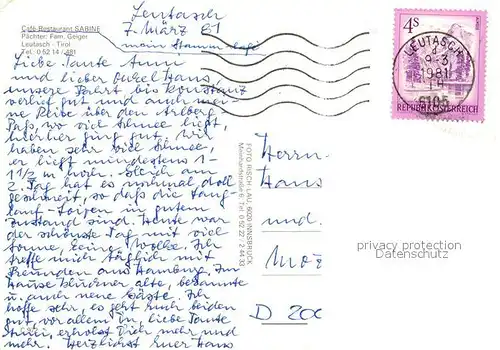 Café-Restaurant SABINE
Pächter: Fam. Geiger
Leutasch - Tirol
Tel. 0 52 14 / 481
Leutasch
7. März 81
mein Stammcafé
Liebe Tante Anni
und lieber Onkel Hans
unsere Fahrt bis Konstanz
verlief gut und auch meine
Reise über den Arlberg
Paß, wo viel Schnee liegt,
hierher ging gut. Wir
haben sehr viel Schnee,
er liegt mindestens 1-
1 1/2 m hoch. Gleich am
2. Tag hat es nochmal doll
geschneit, so daß die Lang-
lauf-Loipen in gutem
Zustand sind. Heute war
der schönste Tag mit viel
Sonne, keine Wolke. Ich
treffe mich täglich mit
Freunden aus Hamburg. Im
Hause Kluckner alte, bekannte
u. auch neue Gäste. Ich
hoffe sehr, es geht Euch beiden
gut, vor allem Dir, liebe Tante
Anni, erholst Dich mehr und
mehr. Herzlichst Euer Hans
FOTO RISCH-LAU, 6020 INNSBRUCK
Tel. 0 52 22 - 2 44 33
4 S
REPUBLIK ÖSTERREICH
LEUTASCH
9.-3.
1981
105
Herrn
Hans
und
D 200
privacy protection
Datenschutz